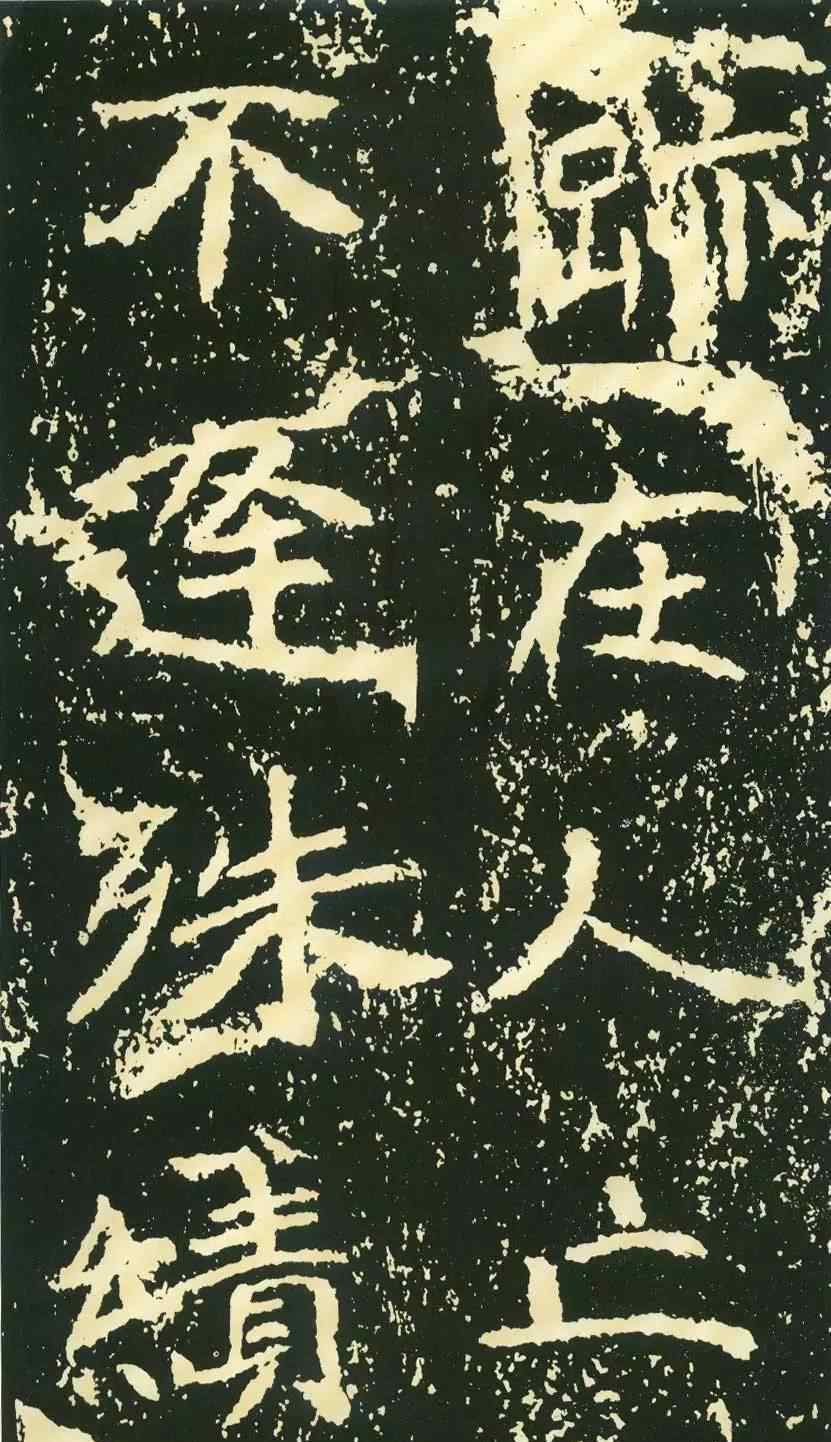 跡在人亡
不逢殊績